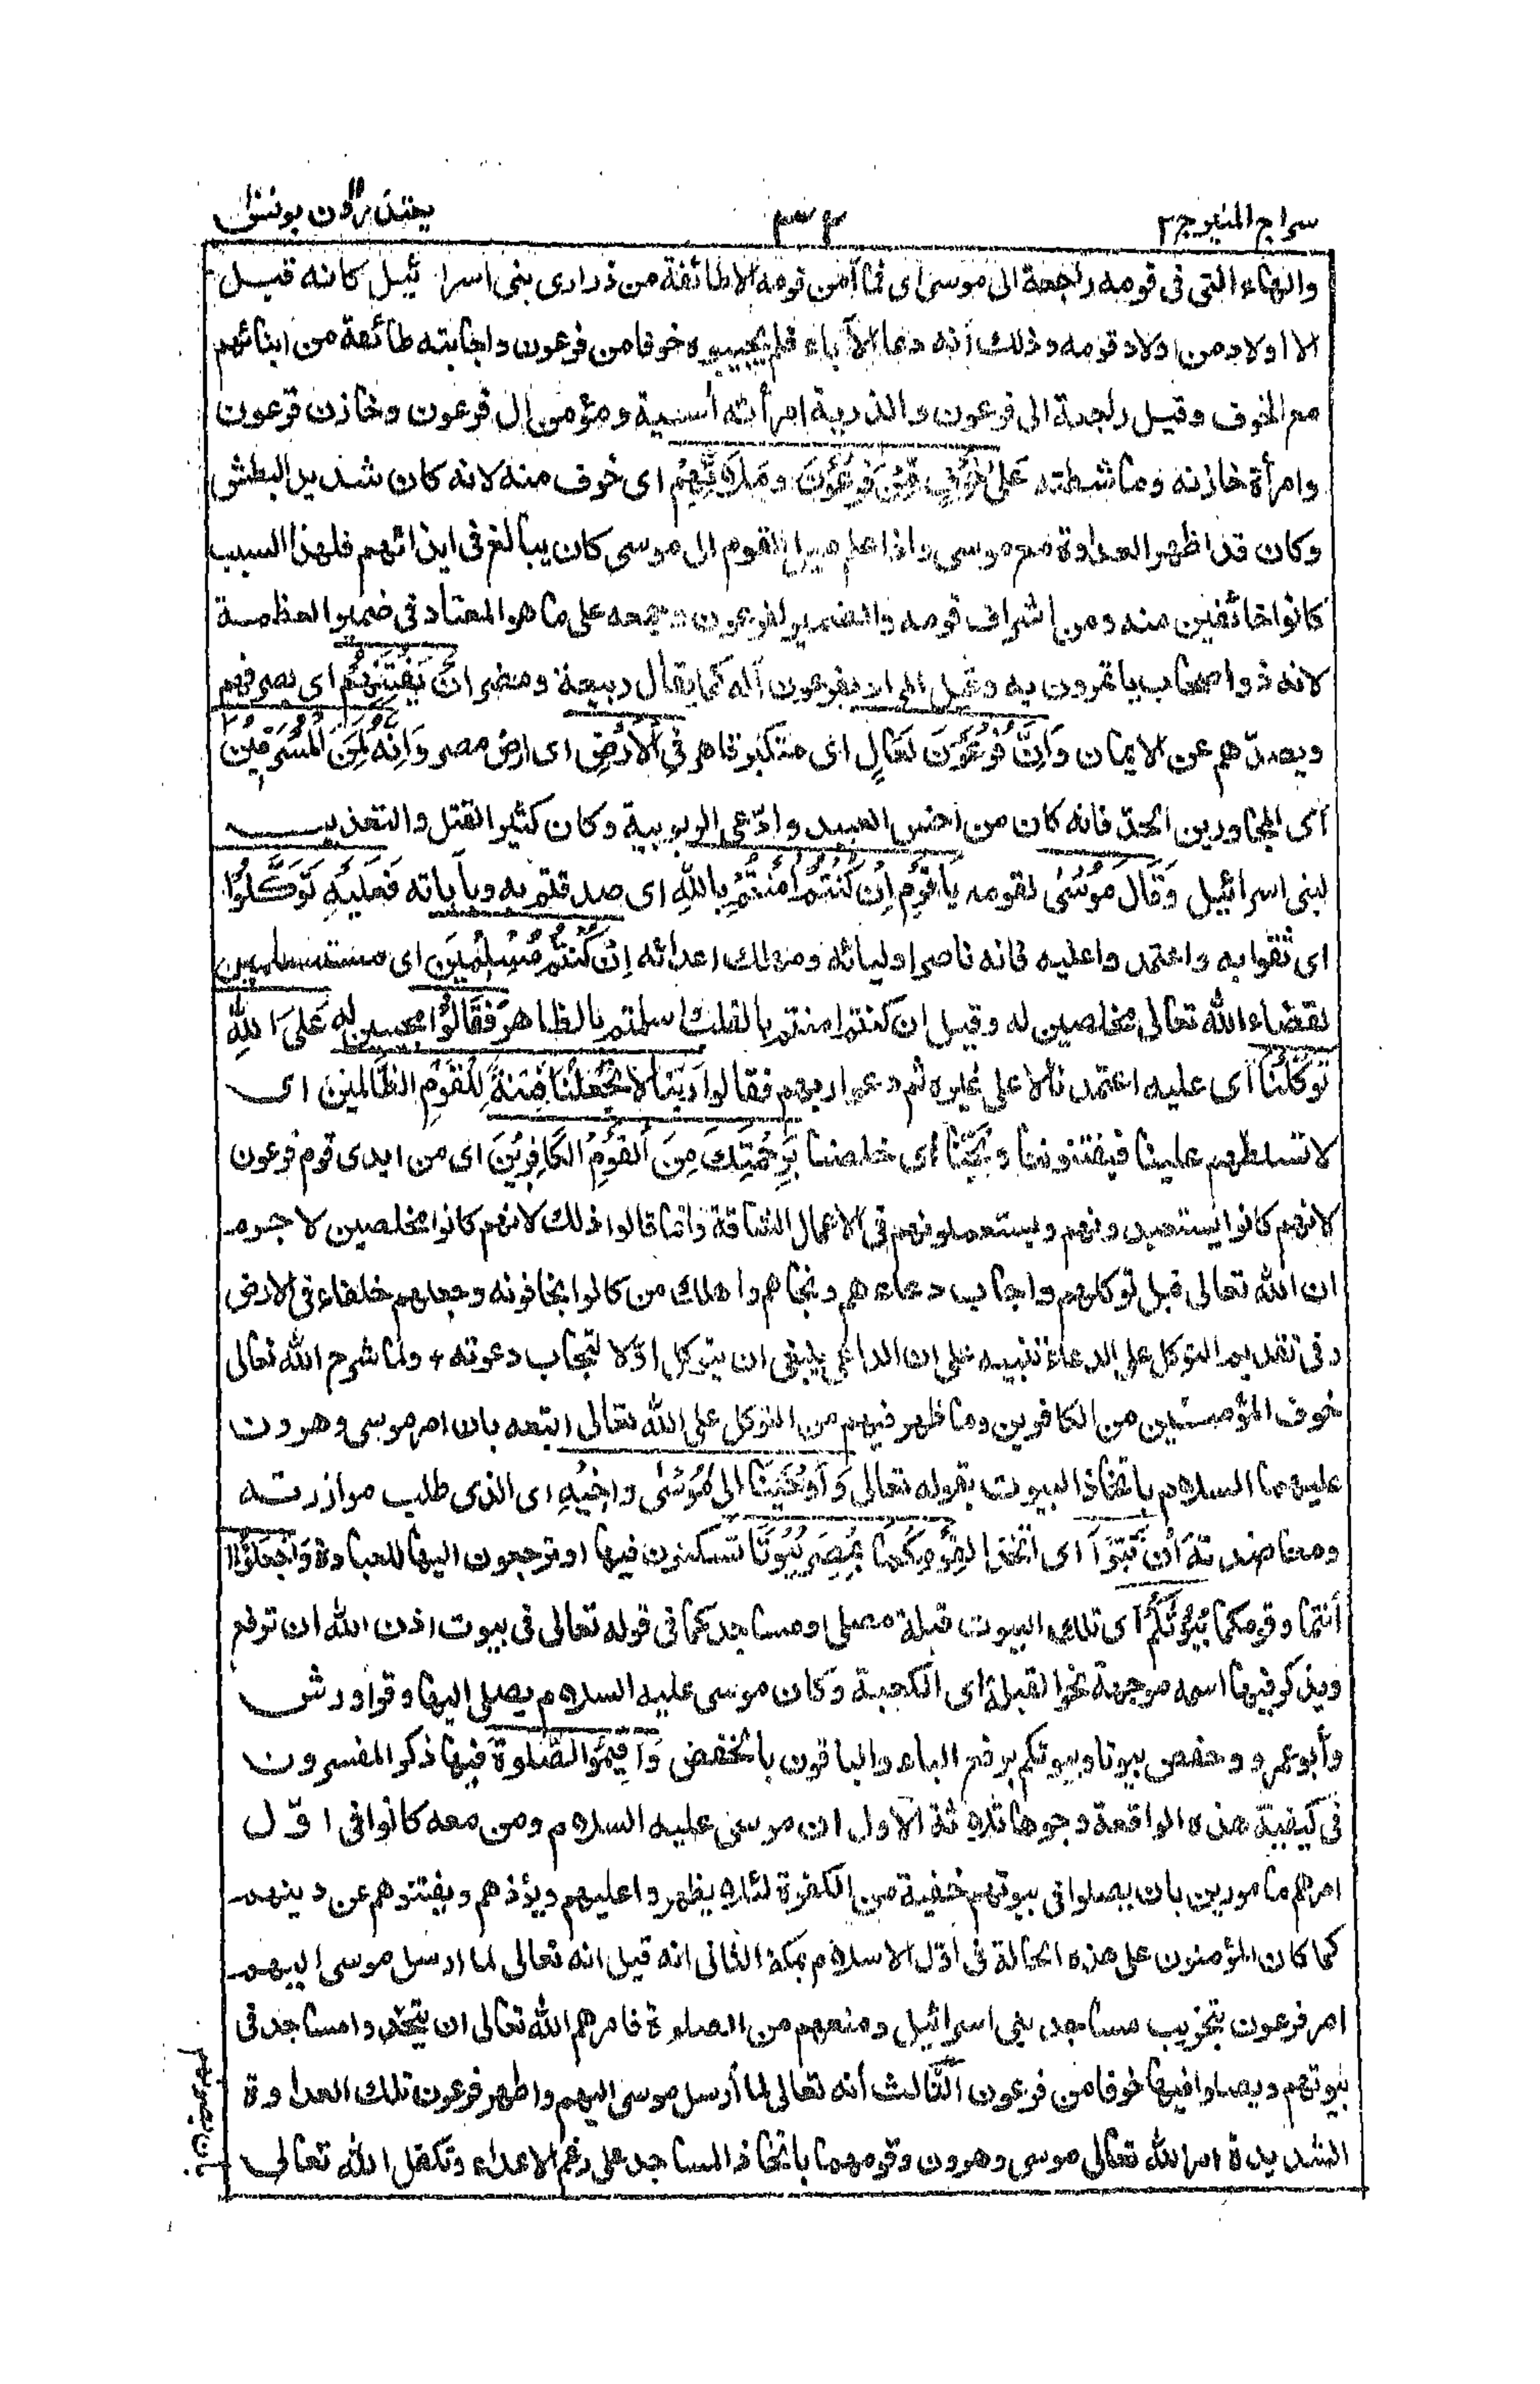 سراج المنير ج٢
يعتذرون يونس
والهاء التى فى قومه راجعة الى موسى اى فما آمن قومه الا طائفة من ذرارى بنى اسرا ئيل كانه قيل
الا اولاد من اولاد قومه وذلك أنه دعا الآباء فلم يجيبوه خوفا من فرعون واجابته طائفة من ابنائهم
مع الخوف وقيل راجعة الى فرعون والذرية امرأته أسية ومؤمن ال فرعون وخازن فرعون
وامرأة خازنه وماشطته عَلىٰ خَوْفٍ مِّنْ فِرْعَوْنَ وَمَلَائِهِمْ اى خوف منه لانه كان شديد البطش
وكان قد اظهر العداوة مع موسى واذا علم ميل القوم الى موسى كان يبالغ فى ايذائهم فلهذا السبب
كانوا خائفين منه ومن اشراف قومه والضمير لفرعون وجمعه على ما هو المعتاد فى ضمير العظمة
لانه ذو اصحاب ياتمرون به وقيل المراد بفرعون آله كما يقال ربيعة ومضر اَنْ يَّفْتِنَهُمْ اى يصرفهم
ويصدّهم عن الايمان وَاِنَّ فِرْعَوْنَ لَعَالٍ اى متكبر قاهر فِي الْاَرْضِ اى ارض مصر وَاِنَّهُ لَمِنَ الْمُسْرِفِيْنَ
اى المجاوزين الحدّ فانه كان من اخس العبيد وادّعى الربوبية وكان كثير القتل والتعذيب
لبنى اسرائيل وَقَالَ مُوْسٰى لقومه يَا قَوْمِ اِنْ كُنْتُمْ اٰمَنْتُمْ بِاللّٰهِ اى صدقتم به وبآياته فَعَلَيْهِ تَوَكَّلُوْا
اى ثقوا به واعتمدوا عليه فانه ناصر اوليائه ومهلك اعدائه اِنْ كُنْتُمْ مُسْلِمِيْنَ اى مستسلمين
لقضاء الله تعالى مخلصين له وقيل ان كنتم امنتم بالقلب واسلمتم بالظاهر فَقَالُوْا مجيبين له عَلَى اللهِ
تَوَكَّلْنَا اى عليه اعتمدنا لا على غيره ثم دعوا ربهم فقالوا رَبَّنَا لَا تَجْعَلْنَا فِتْنَةً لِلْقَوْمِ الظَّالِمِيْنَ اى
لا تسلطهم علينا فيفتنوننا وَنَجِّنَا اى خلصنا بِرَحْمَتِكَ مِنَ الْقَوْمِ الْكَافِرِيْنَ اى من ايدى قوم فرعون
لانهم كانوا يستعبدونهم ويستعملونهم فى الاعمال الشاقة وانما قالوا ذلك لانهم كانوا مخلصين لا جرم
ان الله تعالى قبل توكلهم واجاب دعاءهم ونجاهم واهلك من كانوا يخافونه وجعلهم خلفاء فى الارض
وفى تقديم التوكل على الدعاء تنبيه على ان الداعى ينبغى ان يتوكل اوّلا لتجاب دعوته + ولما شرح الله تعالى
خوف المؤمنين من الكافرين وما ظهر فيهم من التوكل على الله تعالى اتبعه بان امر موسى وهرون
عليهما السلام باتخاذ البيوت بقوله تعالى وَاَوْحَيْنَا الى مُوْسٰى وَاَخِيْهِ اى الذى طلب موازرته
ومعاضدته اَنْ تَبَوَّآ اى اتخذا لِقَوْمِكُمَا بِمِصْرَ بُيُوْتًا تسكنون فيها او ترجعون اليها للعبادة وَاجْعَلُوْا
أنتما وقومكما بُيُوْتَكُمْ اى تلك البيوت قبلة مصلى او مساجد كما فى قوله تعالى فى بيوت اذن الله ان ترفع
ويذكر فيها اسمه موجهة نحو القبلة اى الكعبة وكان موسى عليه السلام يصلى اليها وقرا ورش
وأبو عمرو وحفص بيوتا وبيوتكم برفع الباء والباقون بالخفض وَاَقِيْمُوا الصَّلٰوةَ فيها ذكر المفسرون
فى كيفية هذه الواقعة وجوها ثلاثة الاول ان موسى عليه السلام ومن معه كانوا فى اوّل
امرهم مامورين بان يصلوا فى بيوتهم خفية من الكفرة لئلا يظهروا عليهم ويؤذوهم ويفتنوهم عن دينهم
كما كان المؤمنون على هذه الحالة فى اوّل الاسلام بمكة الثانى انه قيل انه تعالى لما ارسل موسى اليهم
امر فرعون بتخريب مساجد بنى اسرائيل ومنعهم من الصلوة فامرهم الله تعالى ان يتخذوا مساجد فى
بيوتهم ويصلوا فيها خوفا من فرعون الثالث أنه تعالى لما أرسل موسى اليهم واظهر فرعون تلك العداوة
الشديدة امر الله تعالى موسى وهرون وقومهما باتخاذ المساجد على رغم الاعداء وتكفل الله تعالى